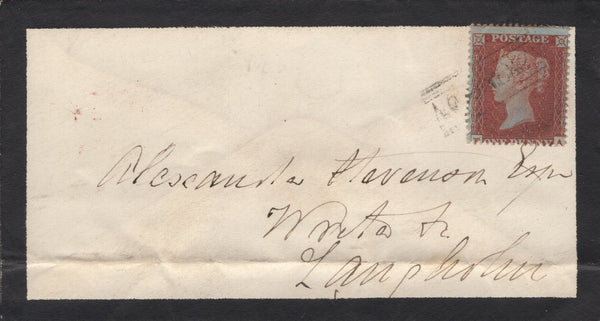 POSTAGE
Alexander Stevenson Esqr
Writer &c
Langholm